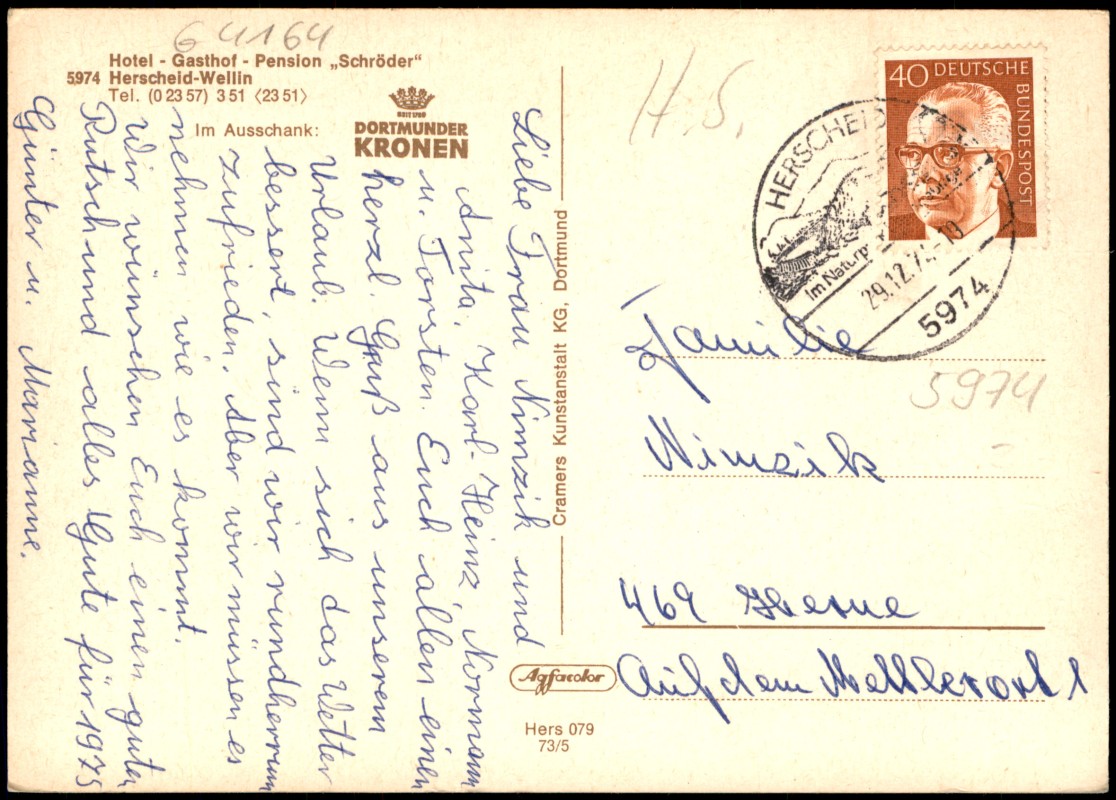 G 41164
Hotel - Gasthof - Pension „Schröder“
5974 Herscheid-Wellin
Tel. (0 23 57) 3 51 〈23 51〉
Im Ausschank:
SEIT 1729
DORTMUNDER
KRONEN
Liebe Frau Nimzik und
Anita, Karl-Heinz, Normann
u. Torsten. Euch allen einen
herzl. Gruß aus unserem
Urlaub. Wenn sich das Wetter
bessert, sind wir rundherrum
zufrieden. Aber wir müssen es
nehmen wie es kommt.
Wir wünschen Euch einen guten
Rutsch und alles Gute für 1975
Günter u. Marianne.
Cramers Kunstanstalt KG, Dortmund
Agfacolor
Hers 079
73/5
H.S.
40 DEUTSCHE
BUNDESPOST
HERSCHEID
Im Naturp
29.12.74-10
5974
Familie
5974
Nimzik
469 Herne
Auf dem